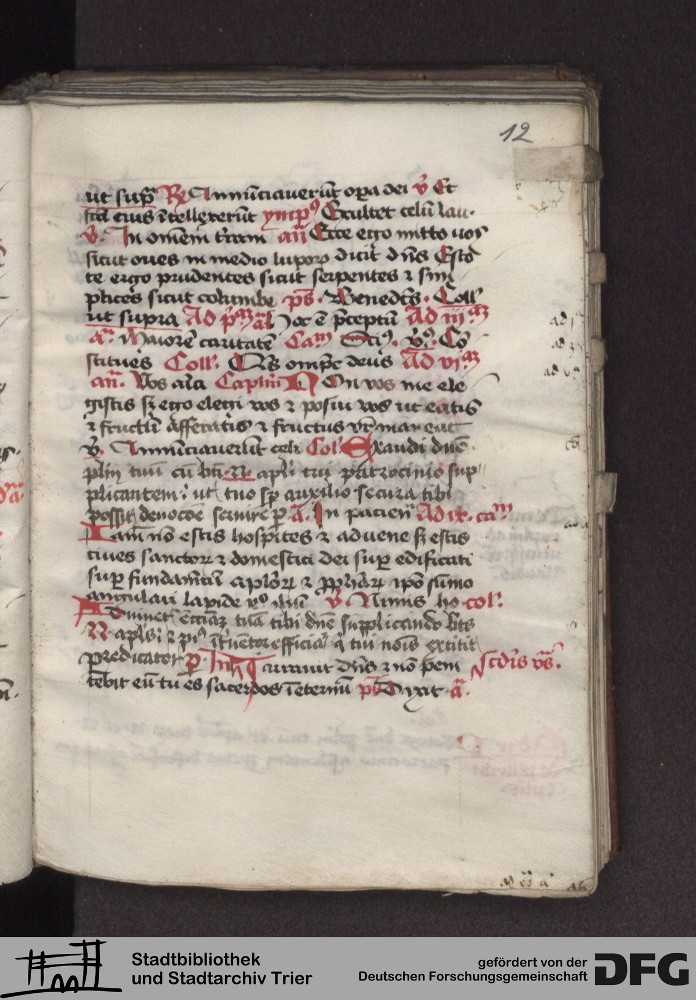 12
ut sup̃ R̃ Annũciaverũt opa dei ṽ Et
fc̃a eius ĩtellexerũt ymp̃9 Exultet celũ lau.
ṽ. In omẽm t̃ram añ Ecce ego mitto uos
sicut oues in medio luporꝫ dicit dñs Esto
te ergo prudentes sicut serpentes ⁊ sim
plices sicut columbe p̃s. Benedc̃s. Coll̃
ut supra Ad p̃ꝫ a᷑ hoc ẽ p̃ceptũ Ad iijꝫ
a᷑. Maiorẽ caritatẽ Cam̃ v̓9 Cõ
stitues Coll. Q̃s omp̃c deus Ad viꝫ
añ. Vos aĩci Caplm̃ Non vos me ele
gistis sꝫ ego elegi vos ⁊ posui vos ut eatis
⁊ fructũ afferatis ⁊ fructus vr̃ maneat
ṽ. Annũciauerũt celi Col̃ Exaudi dñe
pl̃m tuũ cũ bt̃i .N. apl̃i tui pat̃rocinio sup
plicantem: ut tuo sp̃ auxilio secura tibi
possit deuocõe seruire p̃ a᷑. In pacien̄ Ad ix. cam̃
Iam nõ estis hospites ⁊ aduene sꝫ estis
ciues sanctorꝫ ⁊ domestici dei sup̃ edificati
sup̃ fundam̃tũ apl̃orꝫ ⁊ ꝓphãrꝫ ip̃o sũmo
angulari lapide xp̃o ihũ ṽ. Nimis ho col̃:
Adiuuet ecciaꝫ tuã tibi dñe supplicando bt̃s
N aplus ⁊ pi9 ĩt̃uentor efficiat̃ q̃ tui nõis extitit
predicator p̃ In Iurauit dñs ⁊ nõ peni Scdĩs vs̃.
tebit eũ tu es sacerdos ĩ eternũ ps̃ Dixit a᷑.
ad i
ad 3
ad v
Stadtbibliothek
und Stadtarchiv Trier
gefördert von der
Deutschen Forschungsgemeinschaft
DFG